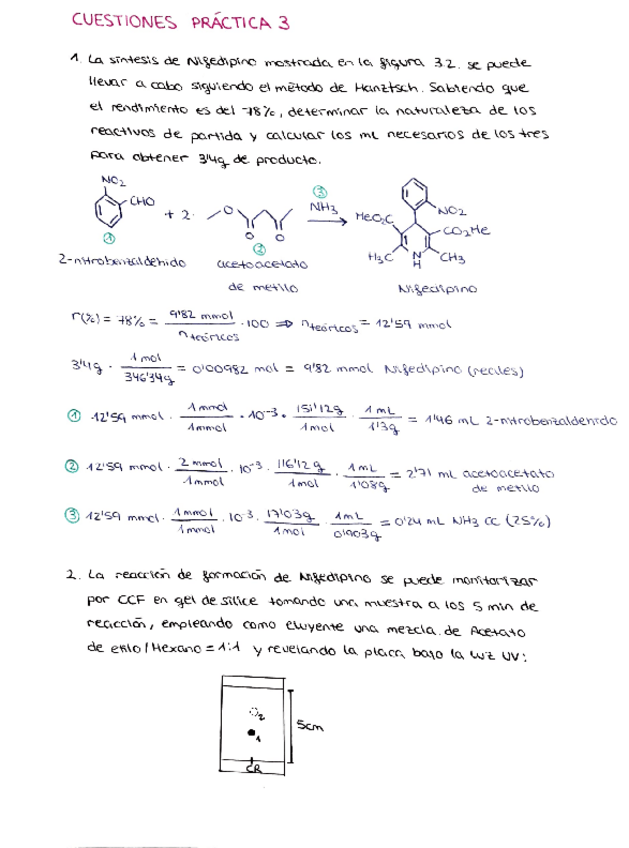 CUESTIONES PRÁCTICA 3
1. La síntesis de Nifedipino mostrada en la figura 3.2. se puede
llevar a cabo siguiendo el método de Hanztsch. Sabiendo que
el rendimiento es del 78%, determinar la naturaleza de los
reactivos de partida y calcular los mL necesarios de los tres
para obtener 3'4g de producto.
NO2
CHO
① 
+ 2.
O
O O
②
③
NH3
MeO2C
NO2
CO2Me
H3C
N
H
CH3
2-nitrobenzaldehído
acetoacetato
de metilo
Nifedipino
r(%) = 78% = 9'82 mmol / nteóricos · 100 ⇒ nteóricos = 12'59 mmol
3'4g · 1 mol / 346'34g = 0'00982 mol = 9'82 mmol Nifedipino (reales)
① 12'59 mmol · 1 mmol / 1 mmol · 10-3 · 151'12g / 1 mol · 1 mL / 1'3g = 1'46 mL 2-nitrobenzaldehído
② 12'59 mmol · 2 mmol / 1 mmol · 10-3 · 116'12 g / 1 mol · 1 mL / 1'08g = 2'71 mL acetoacetato
de metilo
③ 12'59 mmol · 1 mmol / 1 mmol · 10-3 · 17'03g / 1 mol · 1 mL / 0'903g = 0'24 mL NH3 CC (25%)
2. La reacción de formación de Nifedipino se puede monitorizar
por CCF en gel de sílice tomando una muestra a los 5 min de
reacción, empleando como eluyente una mezcla de Acetato
de etilo/Hexano = 1:1 y revelando la placa bajo la luz UV:
2
1
5cm
CR